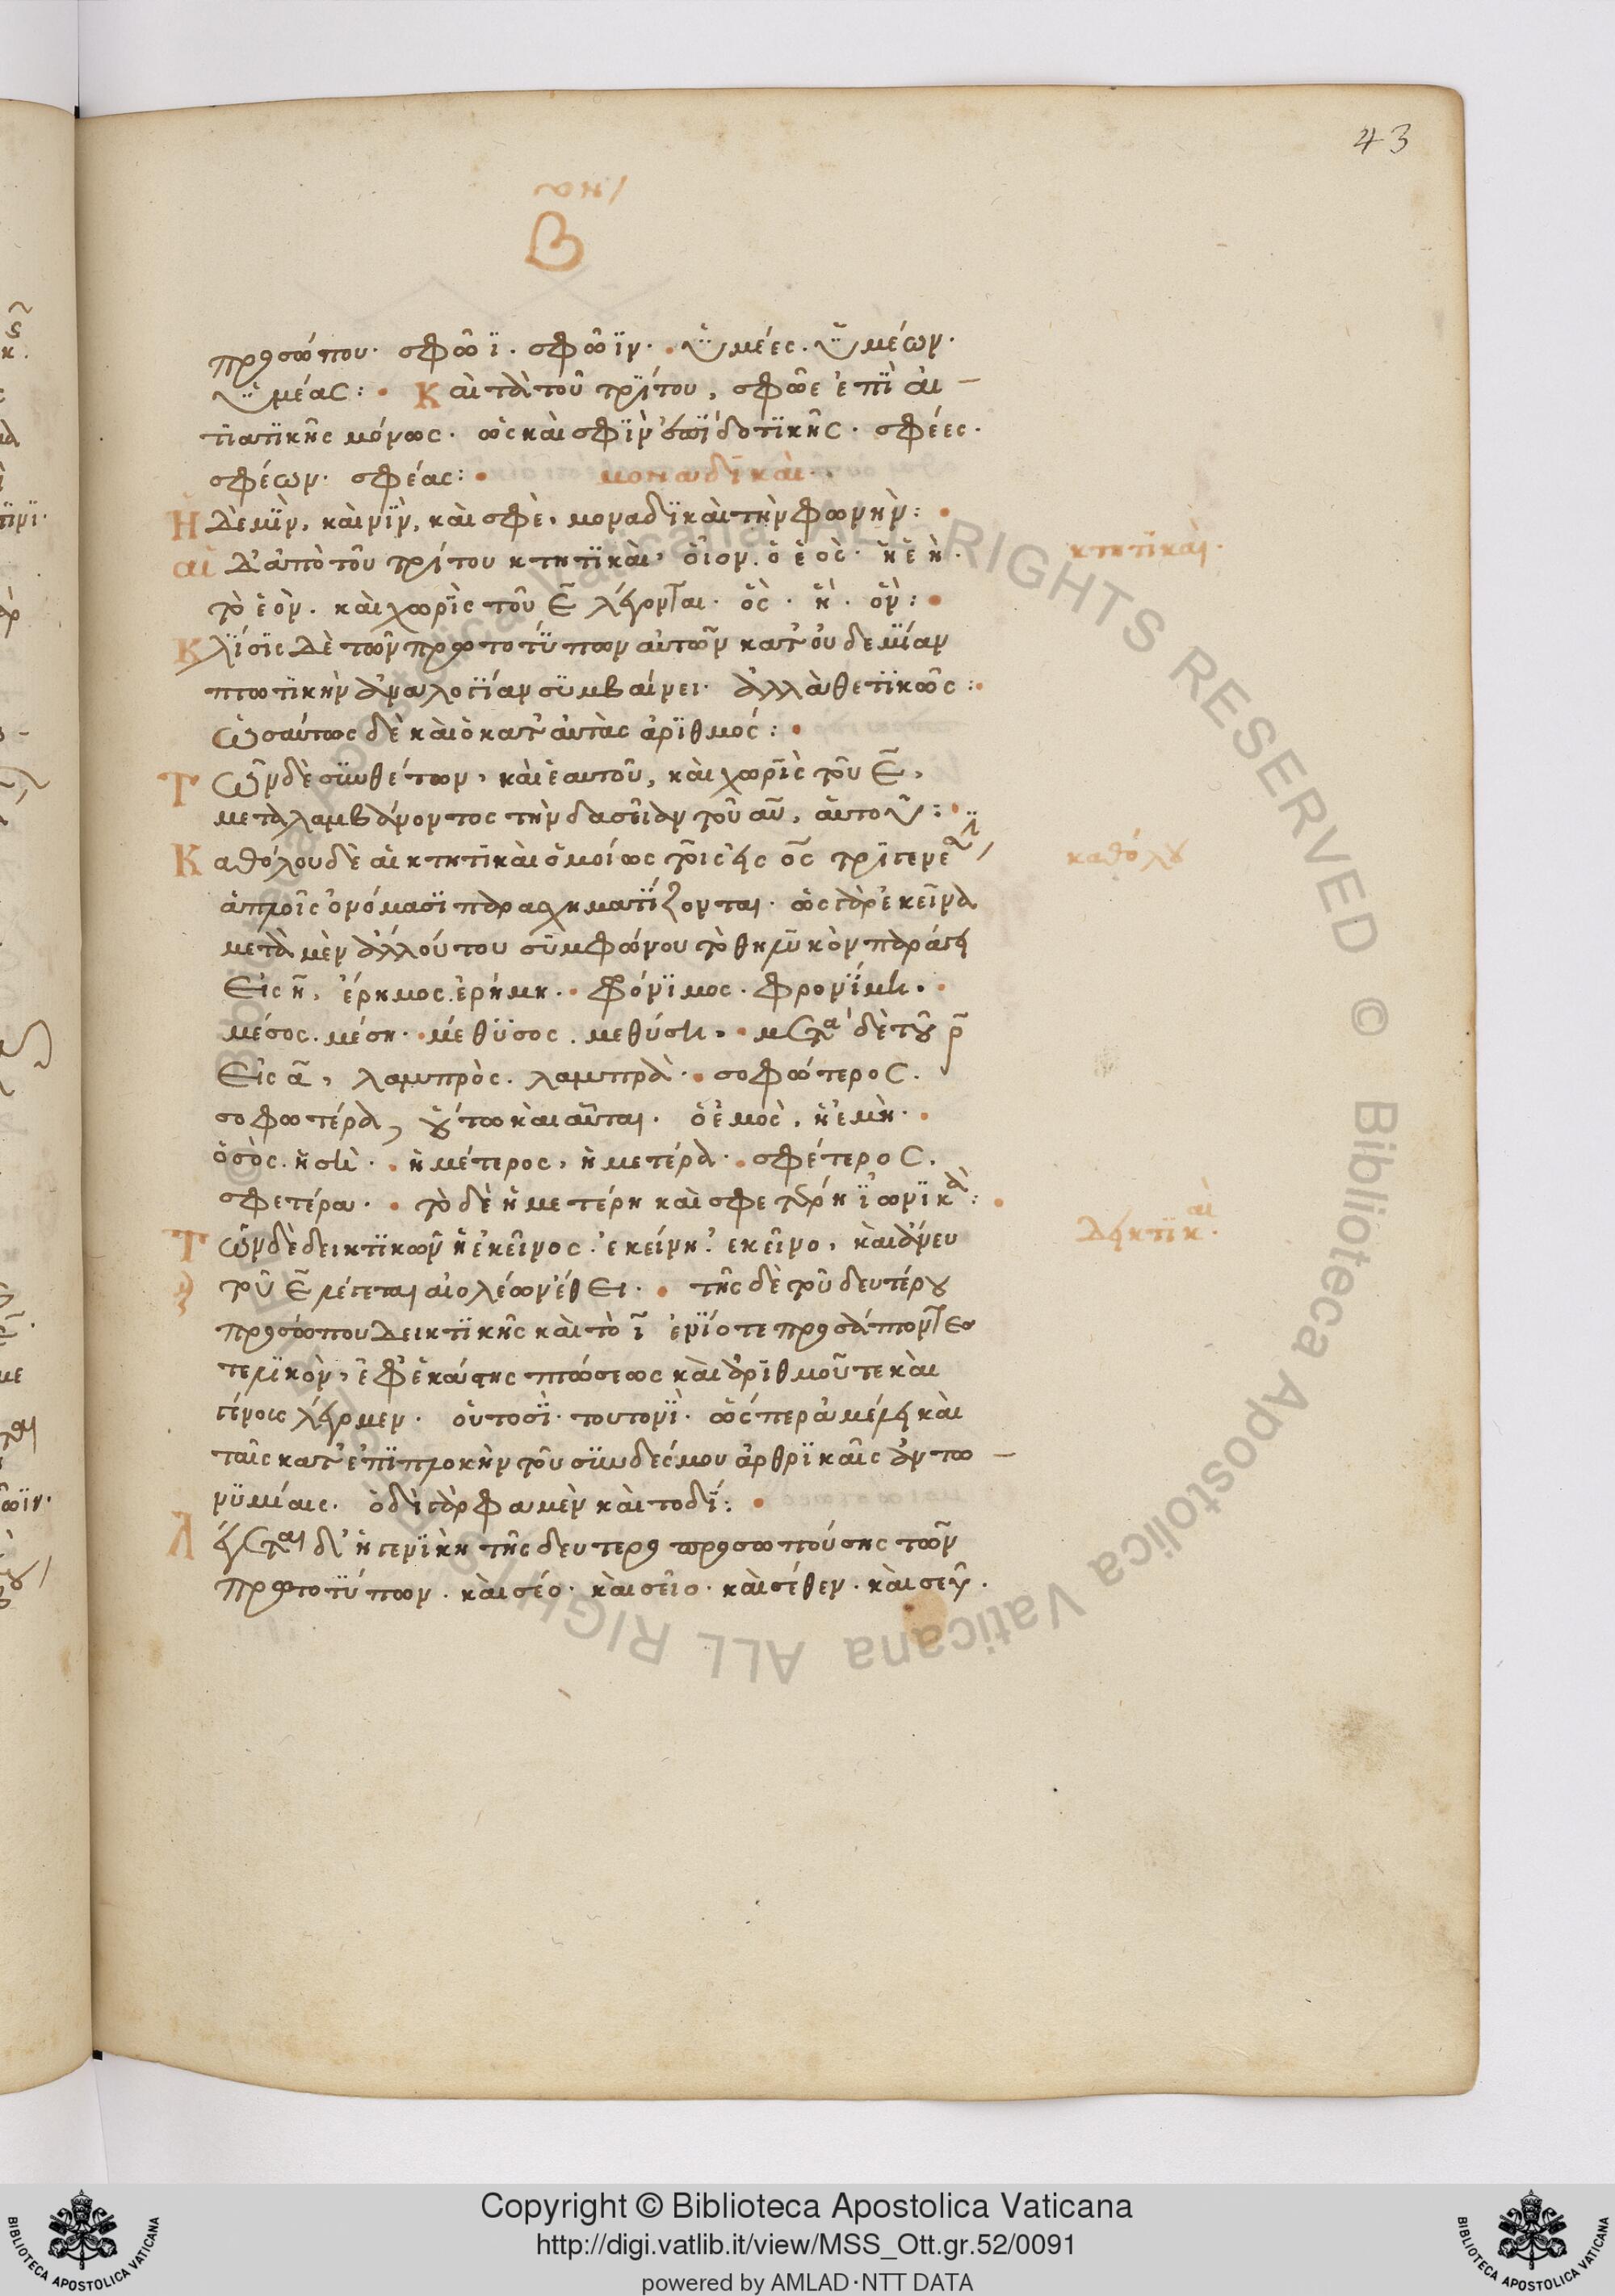 43
Β
προσώπου· σφῶϊ. σφῶϊν· ὑμέες. ὑμέων·
ὑμέας: Καὶ τὰ τοῦ τρίτου, σφῶε ἐπὶ αἰ-
τιατικῆς μόνως· ὡς καὶ σφὶν ἐπὶ δοτικῆς· σφέες·
σφέων· σφέας:
μοναδικαὶ·
Ἡ δὲ μὶν, καὶ νὶν, καὶ σφὲ, μοναδικαὶ τὴν φωνὴν:
κτητικαὶ·
αἱ δ' ἀπὸ τοῦ τρίτου κτητικαὶ, οἷον. ὁ ἑὸς· ἡ ἑὴ·
τὸ ἑὸν. καὶ χωρὶς τοῦ ε̄ λέγονται· ὃς· ἣ· ὃν:
Κλίσις δὲ τῶν πρωτοτύπων αὐτῶν κατ' οὐδεμίαν
πτωτικὴν ἀναλογίαν συμβαίνει· ἀλλὰ θετικῶς:
Ὡσαύτως δὲ καὶ ὁ κατ' αὐτὰς ἀριθμός:
Τῶν δὲ συνθέτων, καὶ ἑαυτοῦ, καὶ χωρὶς τοῦ ε̄,
μεταλαμβάνοντος τὴν δασεῖαν τοῦ αυ, αὑτοῦ:
καθόλου
Καθόλου δὲ αἱ κτητικαὶ ὁμοίως τοῖς εἰς ος τριγενέσι
ἁπλοῖς ὀνόμασι παρασχηματίζονται· ὡς γὰρ ἐκεῖνα
μετὰ μὲν ἄλλου του συμφώνου τὸ θηλυκὸν παράγει
Εἰς η̄, ἔρημος. ἐρήμη. φόνιμος. φρονίμη.
μέσος. μέση. μέθυσος. μεθύση, μετὰ δὲ τοῦ ρ̄
Εἰς ᾱ, λαμπρὸς. λαμπρὰ· σοφώτερος.
σοφωτέρα, οὕτω καὶ αὗται· ὁ ἐμὸς, ἡ ἐμὴ·
ὁ σὸς. ἡ σὴ· ἡμέτερος, ἡμετέρα· σφέτερος.
σφετέρα· τὸ δὲ ἡμετέρη καὶ σφετέρη ἰωνικὰ:
δεικτικαὶ·
Τῶν δὲ δεικτικῶν ἡ ἐκεῖνος· ἐκείνη· ἐκεῖνο, καὶ ἄνευ
τοῦ ε̄ λέγεται αἰολέων ἔθει· τῆς δὲ τοῦ δευτέρου
προσώπου δεικτικῆς καὶ τὸ ῑ ἐνίοτε προσάπτοντες
γενικὸν, ἐφ' ἑκάστης πτώσεως καὶ ἀριθμοῦ τε καὶ
γένους λέγομεν· οὑτοσὶ· τουτονὶ· ὥσπερ ἀμέλει καὶ
ταῖς κατ' ἐπιπλοκὴν τοῦ συνδέσμου ἀρθρικαῖς ἀντω-
νυμίαις. ὁδὶ γὰρ φαμὲν καὶ τοδί:
Λέγεται δ' ἡ γενικὴ τῆς δευτέρου προσωπούσης τῶν
πρωτοτύπων. καὶ σέο· καὶ σεῖο· καὶ σέθεν. καὶ σεῦ.
Copyright © Biblioteca Apostolica Vaticana
http://digi.vatlib.it/view/MSS_Ott.gr.52/0091
powered by AMLAD·NTT DATA
BIBLIOTECA APOSTOLICA VATICANA
BIBLIOTECA APOSTOLICA VATICANA